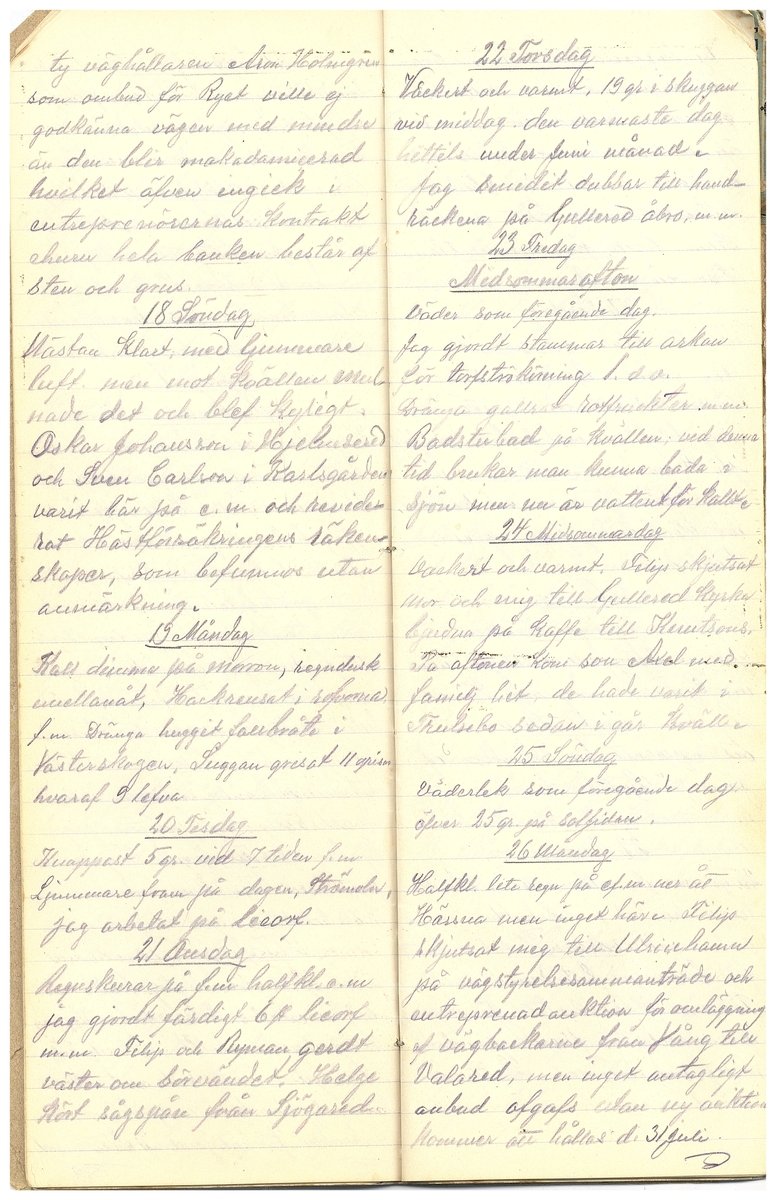 ty väghållaren Aron Holmgren
som ombud för Ryet ville ej
godkänna vägen med mindre
än den blir makadamicerad
hvilket äfven ingick i
entreprenörernas kontrakt
ehuru hela banken består af
sten och grus.
18 Söndag
Nästan Klart, med ljummare
luft men mot kvällen mul-
nade det och blef kyligt.
Oskar Johansson i Hjelmsered
och Sven Carlson i Karlsgården
varit här på e.m. och revide-
rat Hästförsäkringens räken-
skaper, som befunnos utan
anmärkning.
19 Måndag
Kall dimma på morron, regndusk
emellanåt, Hackrensat i rofvorna
f.m. Dränga hugget fallbråte i
Västerskogen, Suggan grisat 11 grisar
hvaraf 9 lefva
20 Tisdag
Knappast 5 gr. vid 7 tiden f.m.
Ljummare fram på dagen, Strömoln,
jag arbetat på licorf.
21 Onsdag
Regnskurar på f.m halfkl. e.m
jag gjordt färdigt 6 st licorf
m.m. Filip och Ryman gerdt
väster om Sörvändet. Helge
Kört sågspån från Sjögared.
22 Torsdag
Vackert och varmt, 19 gr i skuggan
vid middag. den varmaste dag
hittels under Juni månad.
Jag smedit dubbar till hand-
räckena på Gullered åbro, m.m.
23 Fredag
Midsommarafton
Väder som föregående dag.
Jag gjordt stammar till arkan
för torfströkörning l. d. o.
Dränga gallrat rotfrukter m.m.
Badstubad på kvällen; vid denna
tid brukar man kunna bada i
sjön men nu är vattent för kallt.
24 Midsommardag
Vackert och varmt. Filip skjutsat
mor och mig till Gullered Kyrka
bjudna på kaffe till Knutsons.
På aftonen kom son Axel med
familj hit, de hade varit i
Trulsibo sedan i går kväll.
25 Söndag
Väderlek som föregående dag
öfver 25 gr. på solsidan.
26 Måndag
Halfkl. lite regn på ef.m ner åt
Hässna men inget här. Filip
skjutsat mig till Ulricehamn
på vägstyrelsesammanträde och
entreprenadauktion för omläggning
af vägbackarne från Fång till
Valared, men inget antagligt
anbud afgafs utan ny auktion
kommer att hållas d. 31 juli.